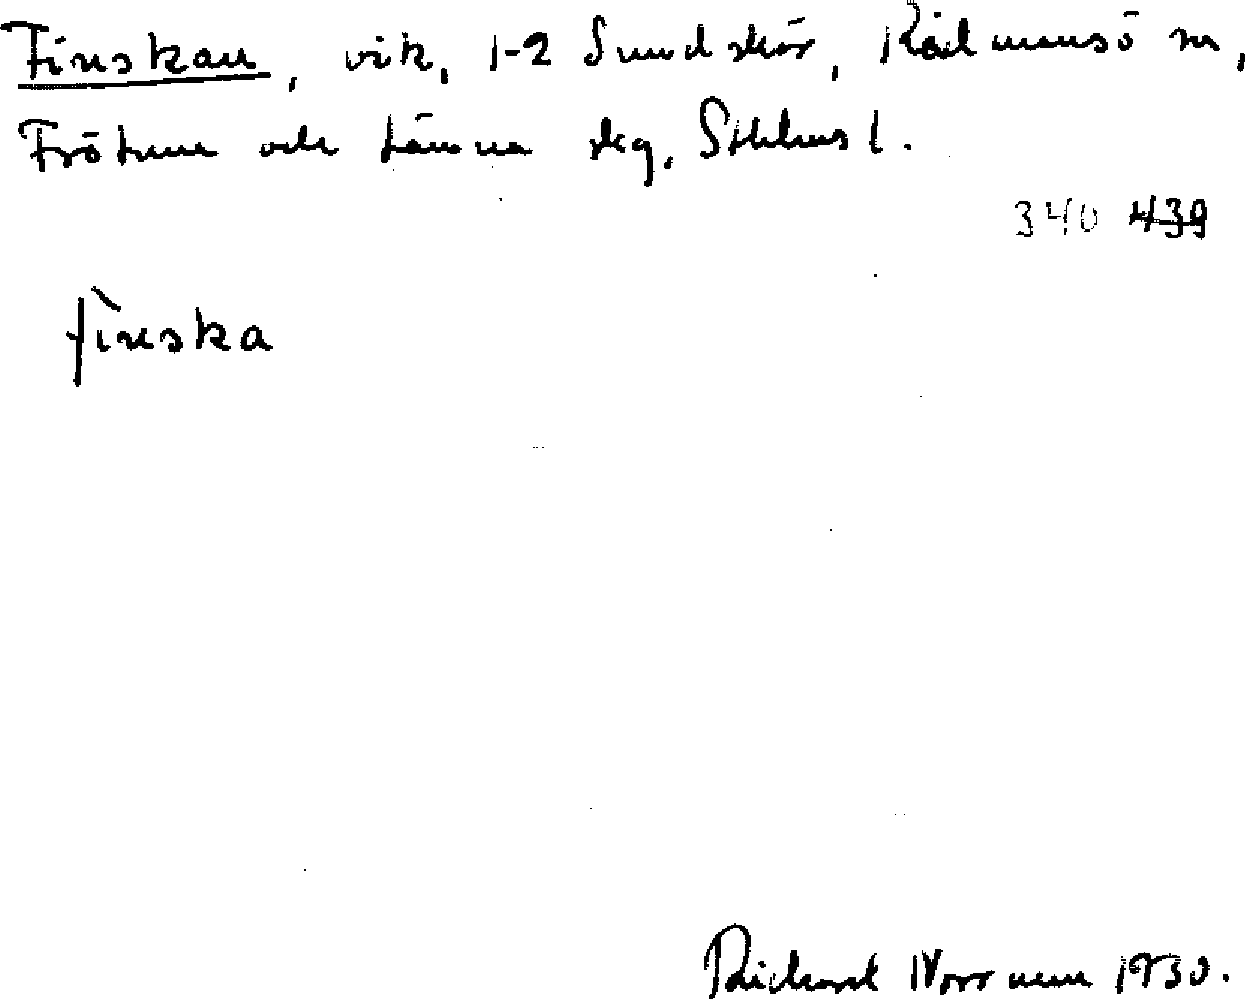 Finskan, vik, 1-2 Sundskär, Rådmansö sn,
Frötuna och Länna skg, Sthlms l.
340 439
fìnska
Rickard Norrman 1930.